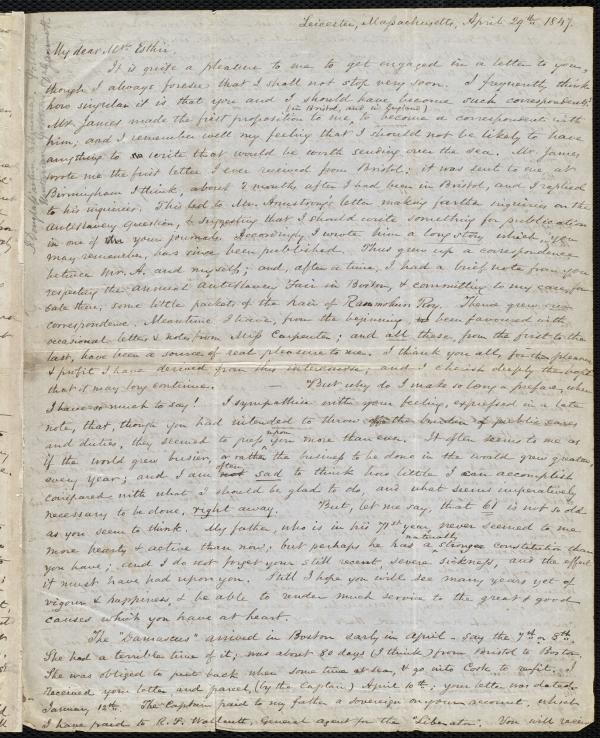 Leicester, Massachusetts, April 29th 1847.
My dear Mr. Estlin,
It is quite a pleasure to me to get engaged in a letter to you,
though I always foresee that I shall not stop very soon. I frequently think
how singular it is that you and I should have become such correspondents.
in Bristol, and in England,
Mr. James made the first proposition to me, to become a correspondent with
him; and I remember well my feeling that I should not be likely to have
anything to write that would be worth sending over the sea. Mr. James
wrote me the first letter I ever received from Bristol; it was sent to me at
Birmingham I think, about 2 months after I had been in Bristol, and I replied
to his inquiries. This led to Mr. Armstrong's letter making farther inquiries on the
Antislavery question, & suggesting that I should write something for publication
in one of your journals. Accordingly I wrote him a long story which, as you
may remember, has since been published. Thus grew up a correspondence
between Mr. A. and myself; and, after a time, I had a brief note from you
respecting the annual Antislavery Fair in Boston, & committing to my care, for
sale there, some little packets of the hair of Rammohun Roy. Thence grew our
correspondence. Meantime I have, from the beginning, been favoured with
occasional letters & notes from Miss Carpenter; and all these, from the first to the
last, have been a source of real pleasure to me. I thank you all, for the pleasure
& profit I have derived from this intercourse, and I cherish deeply the hope
that it may long continue. — But why do I make so long a preface, when
I have so much to say! I sympathise with your feeling, expressed in a late
note, that, though you had intended to throw off the burden of public cares
and duties, they seemed to press upon you more than ever. It often seems to me as
if the world grew busier, or rather the business to be done in the world grew greater,
every year; and I am often sad to think how little I can accomplish
compared with what I should be glad to do, and what seems imperatively
necessary to be done, right away. But, let me say, that 61 is not so old
as you seem to think. My father, who is in his 71st year, never seemed to me
more hearty & active than now; but perhaps he has naturally a stronger constitution than
you have; and I do not forget your still recent, severe sickness, and the effect
it must have had upon you. Still I hope you will see many years yet of
vigour & happiness, & be able to render much service to the great & good
causes which you have at heart.
The "Damascus" arrived in Boston early in April – say the 7th or 8th.
She had a terrible time of it; was about 80 days (I think) from Bristol to Boston.
She was obliged to put back when some time at sea, & go into Cork to refit. I
received your letter and parcel, (by the Captain) April 10th; your letter was dated
January 12th. The Captain paid to my father a sovereign on your account, which
I have paid to R. F. Wallcutt, General agent for the "Liberator". You will receive